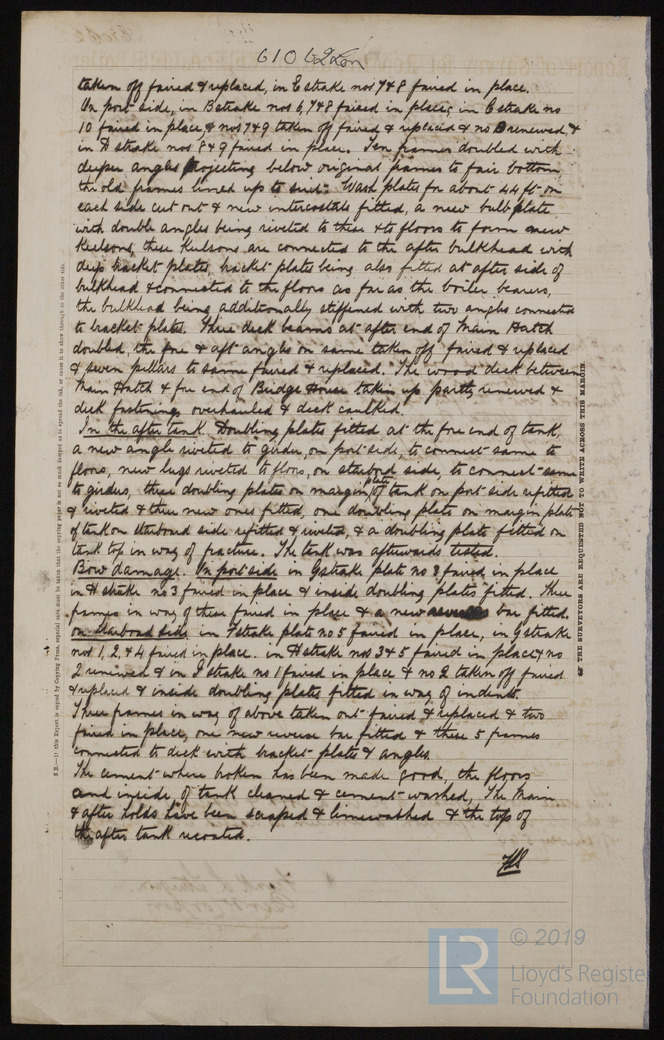 61062 Lon
taken off faired & replaced, in E strake nos 7 & 8 faired in place.
On port side, in B strake nos 6, 7 & 8 faired in place; in C strake no
10 faired in place, & nos 7 & 9 taken off faired & replaced & no 8 renewed &
in D strake nos 8 & 9 faired in place. Ten frames doubled with
deeper angles projecting below original frames to fair bottom,
the old frames lined up to suit. Wash plates for about 44 ft on
each side cut out & new intercostals fitted, a new bulb plate
with double angles being riveted to these & to floors to form new
Keelsons, these Keelsons are connected to the after bulkhead with
deep bracket plates, bracket plates being also fitted at after side of
bulkhead & connected to the floors as far as the boiler bearers,
the bulkhead being additionally stiffened with two angles connected
to bracket plates. Three deck beams at after end of Main Hatch
doubled, the fore & aft angles on same taken off faired & replaced
& seven pillars to same faired & replaced. The wood deck between
Main Hatch & fore end of Bridge House taken up partly renewed &
deck fastening overhauled & deck caulked.
In the after tank. Doubling plates fitted at the fore end of tank,
a new angle riveted to girder, on port side, to connect same to
floors, new lugs riveted to floors, on starbord side, to connect same
to girders, three doubling plates on margin plate of tank on port side refitted
& riveted & three new ones fitted, one doubling plate on margin plate
of tank on starbord side refitted & riveted, & a doubling plate fitted on
tank top in way of fracture. The tank was afterwards tested.
Bow damage. On port side in G strake plate no 3 faired in place
in H strake no 3 faired in place & inside doubling plates fitted. Three
frames in way of these faired in place & a new reverse bar fitted.
on starbord side in F strake plate no 5 faired in place, in G strake
nos 1, 2, & 4 faired in place. in H strake nos 3 & 5 faired in place & no
2 renewed & in J strake no 1 faired in place & no 2 taken off faired
& replaced & inside doubling plates fitted in way of indents.
Three frames in way of above taken out faired & replaced & two
faired in place, one new reverse bar fitted & these 5 frames
connected to deck with bracket plates & angles.
The cement where broken has been made good, the floors
and inside of tank cleaned & cement washed, The Main
& after holds have been scraped & limewashed & the top of
the after tank recoated.
N.B.—If this Report is copied by Copying Press, especial care must be taken that the copying paper is not so much damped as to spread the ink, or cause it to show through to the other side.
THE SURVEYORS ARE REQUESTED NOT TO WRITE ACROSS THIS MARGIN
LR
© 2019
Lloyd's Register
Foundation